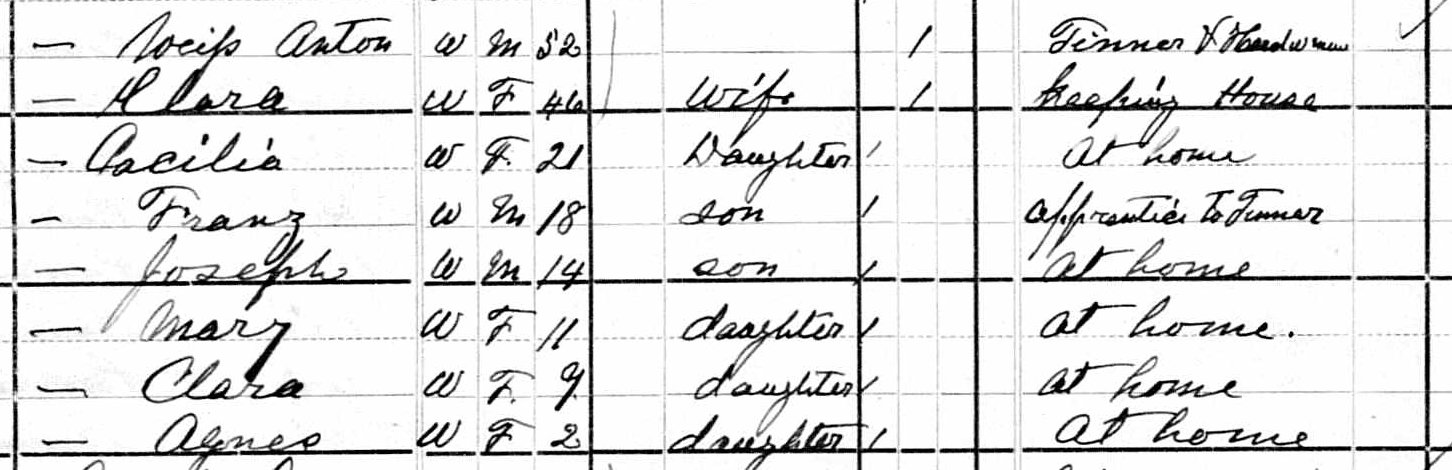 — Weiß Anton W M 52 1 Tinner &
— Klara W F 46 Wife 1 Keeping House
— Cacilia W F. 21 Daughter 1 At home
— Franz W M 18 son 1 apprentice to Tinner
— Joseph W M 14 son 1 At home
— Mary W F 11 daughter 1 At home.
— Clara W F. 9. daughter 1 at home
— Agnes W F 2 daughter 1 At home